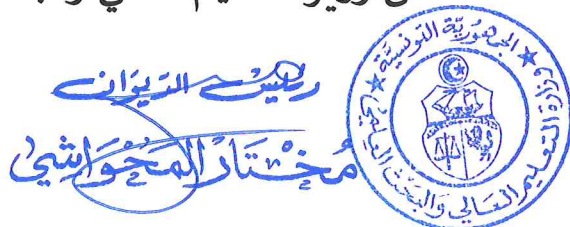 رئيس الديوان
مُخْتَار المَحْوَاشي
الجمهوريّة التونسيّة
وزارة التعليم العالي والبحث العلمي